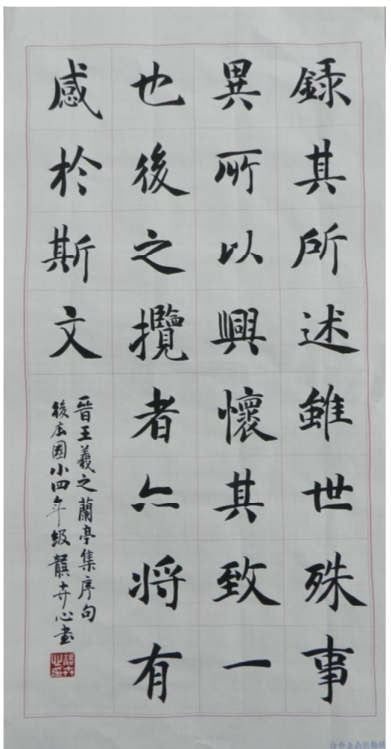 錄其所述雖世殊事
異所以興懷其致一
也後之攬者亦將有
感於斯文
晉王羲之蘭亭集序句
後庄國小四年級龔卉心書